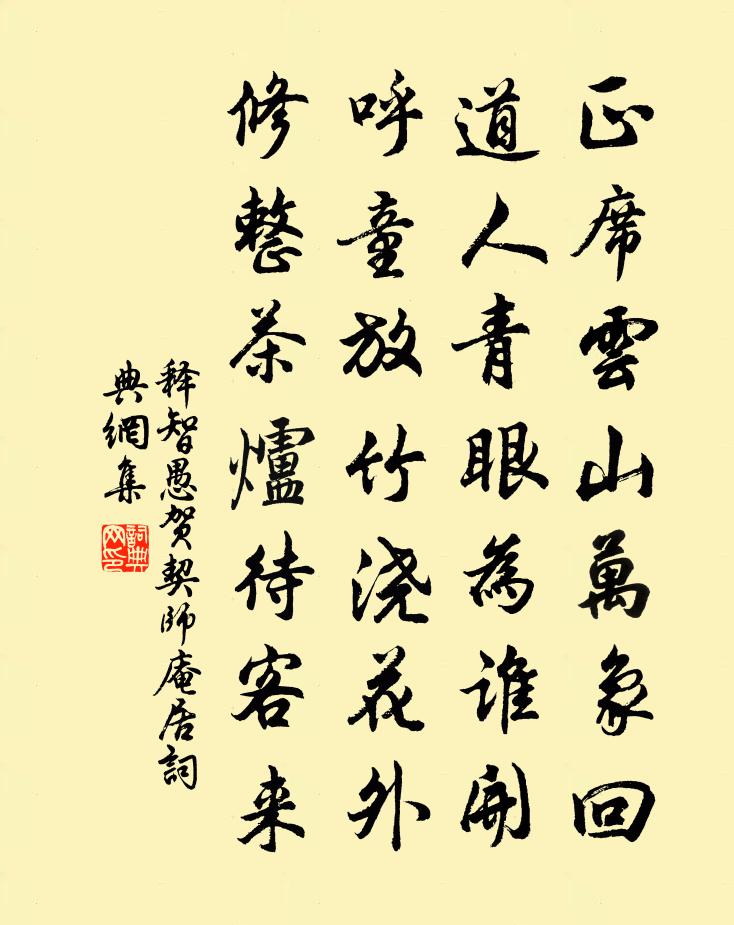 正席雲山萬象回
道人青眼為誰開
呼童放竹浇花外
修整茶爐待客来
释智愚贺契師庵居詞
典網集
詞典网印